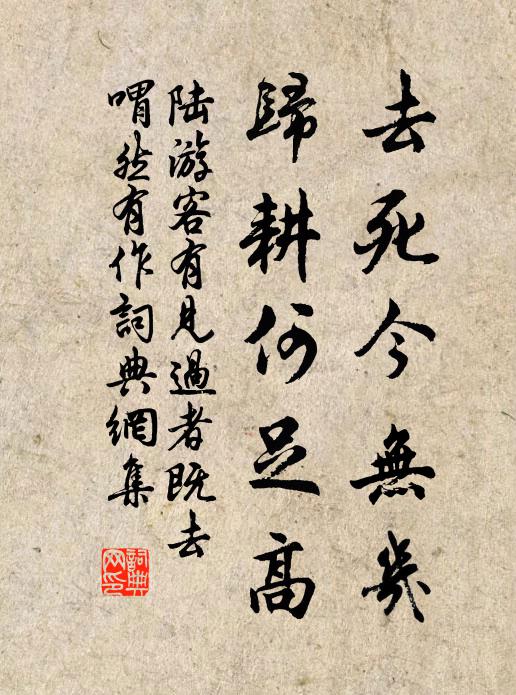 去死今無幾
歸耕何足高
陆游客有見過者既去
喟然有作詞典網集
詞典
网印